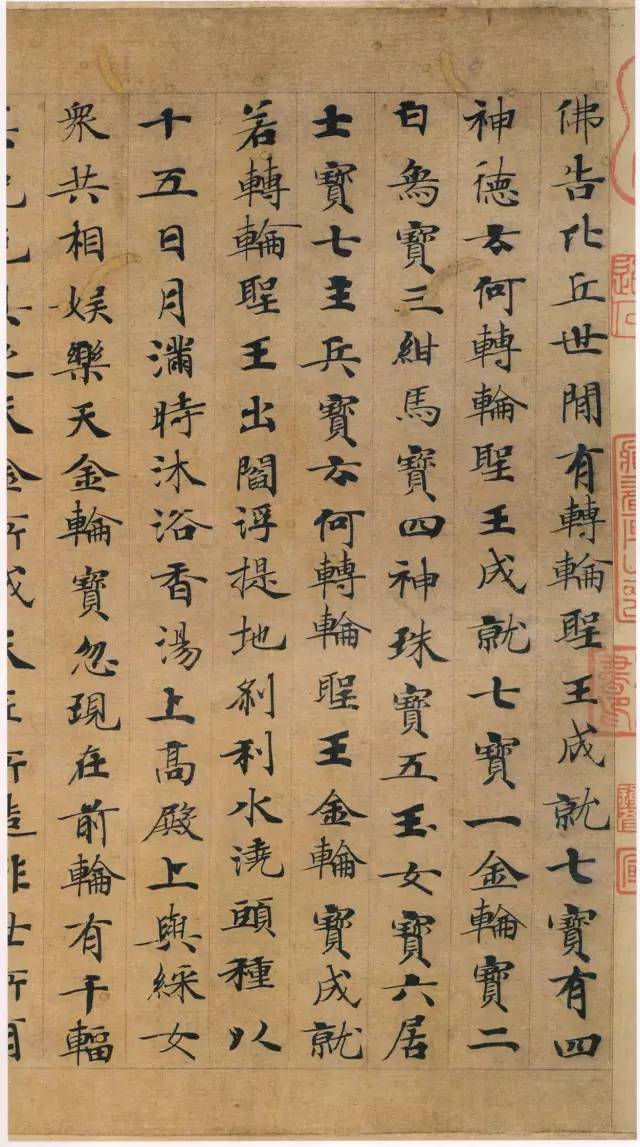 佛告比丘世閒有轉輪聖王成就七寶有四
神德云何轉輪聖王成就七寶一金輪寶二
白象寶三紺馬寶四神珠寶五玉女寶六居
士寶七主兵寶云何轉輪聖王金輪寶成就
若轉輪聖王出閻浮提地剎利水澆頭種以
十五日月滿時沐浴香湯上高殿上與綵女
衆共相娛樂天金輪寶忽現在前輪有千輻
其光色具足天金所成天匠所造非世所有